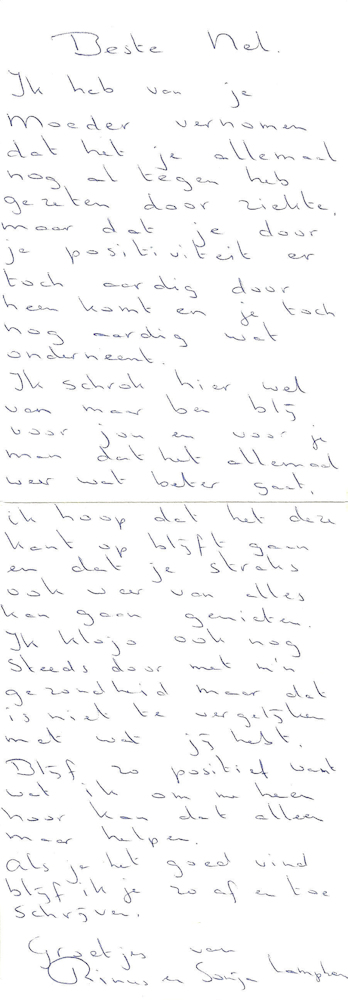 Beste Nel.
Ik heb van je
moeder vernomen
dat het je allemaal
nog al tegen heb
gezeten door ziekte,
maar dat je door
je positiviteit er
toch aardig door
heen komt en je toch
nog aardig wat
onderneemt.
Ik schrok hier wel
van maar ben blij
voor jou en voor je
man dat het allemaal
weer wat beter gaat,
ik hoop dat het deze
kant op blijft gaan
en dat je straks
ook weer van alles
kan gaan genieten.
Ik klojo ook nog
steeds door met m'n
gezondheid maar dat
is niet te vergelijken
met wat jij hebt.
Blijf zo positief want
wat ik om me heen
hoor kan dat alleen
maar helpen.
als je het goed vind
blijf ik je zo af en toe
schrijven.
Groetjes van
Rinus en Sonja